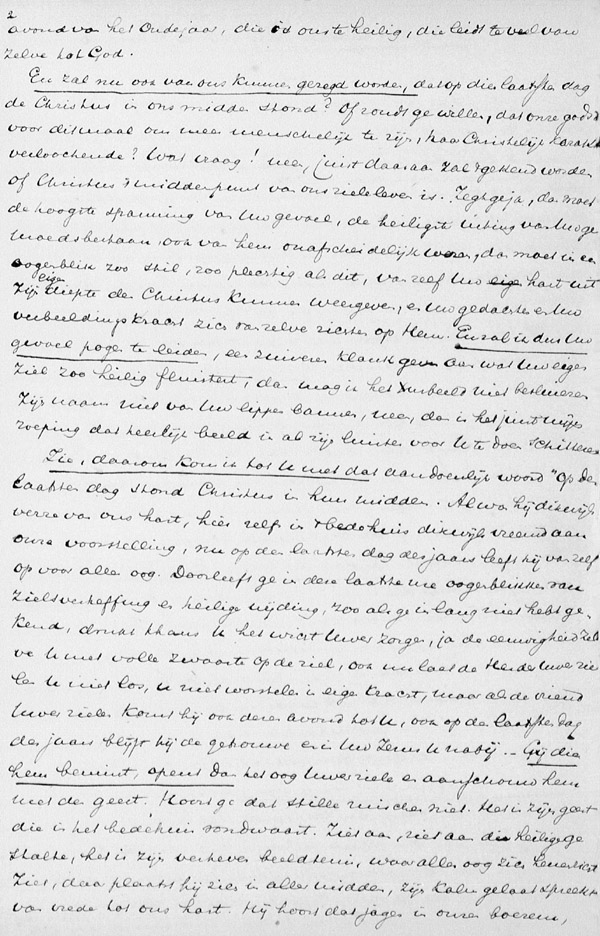 2
avond van het Oude jaar, die is ons te heilig, die leidt te veel van
zelve tot God.
En zal nu ook van ons kunnen gezegd worden, dat op die laatsten dag
de Christus in ons midden stond? Of zoudt ge willen, dat onze godsd
voor ditmaal om meer menschelijk te zijn, haar Christelijk karakter
verloochende? Wat vraag! neen, juist daaraan zal 't gekend worden
of Christus 't middenpunt van ons zieleleven is. Zegt ge ja, dan moet
de hoogste spanning van Uw gevoel, de heiligste uiting van Uw ge
moedsbestaan, ook van hem onafscheidelijk wezen, dan moet in een
oogenblik zoo stil, zoo plechtig als dit, van zelf Uw hart uit
zijn eigen diepte den Christus kunnen weergeven, en Uw gedachte en Uw
verbeeldingskracht zich van zelve richten op Hem. En zal ik dus Uw
gevoel pogen te leiden, een zuiveren klank geven aan wat Uw eigen
ziel zoo heilig fluistert, dan mag ik het beeld niet
zijn naam niet van Uw lippen bannen, neen, dan is het juist mijn
roeping dat heerlijk beeld in al zijn luister voor U te doen schitteren
Zie, daarom kom ik tot U met dat aandoenlijk woord "Op den
laatsten dag stond Christus in hun midden. Al was hij dikwijls
verre van ons hart, hier zelf in 't bedehuis dikwijls vreemd aan
onze voorstelling, nu op den laatsten dag des jaars leeft hij van zelf
op voor aller oog. Doorleeft ge in deze laatste ure oogenblikken van
zielsverheffing en heilige wijding, zoo als ge in lang niet hebt ge-
kend, drukt thans U het wicht Uwer zorgen, ja de eeuwigheid zel
ve U met volle zwaarte op de ziel, ook nu laat de Herder Uwer zie
len U niet los, U niet worstelen in eigen kracht, maar als de vriend
Uwer zielen komt hij ook dezen avond tot U, ook op den laatsten dag
des jaars blijft hij de getrouwe en is Uw Jezus U nabij. - Gij die
hem bemint, opent dan het oog Uwer ziele en aanschouwt hem
met den geest. Hoort ge dat stille ruischen niet. Het is zijn geest
die in het bedehuis rondwaart. Ziet aan, ziet aan die Heilige ge
stalte, het is zijn verheven beeldtenis, waar aller oog zich henen richt
Ziet, daar plaatst hij zich in aller midden, zijn kalm gelaat spreekt
van vrede tot ons hart. Hij hoort dat jagen in onzen boezem,